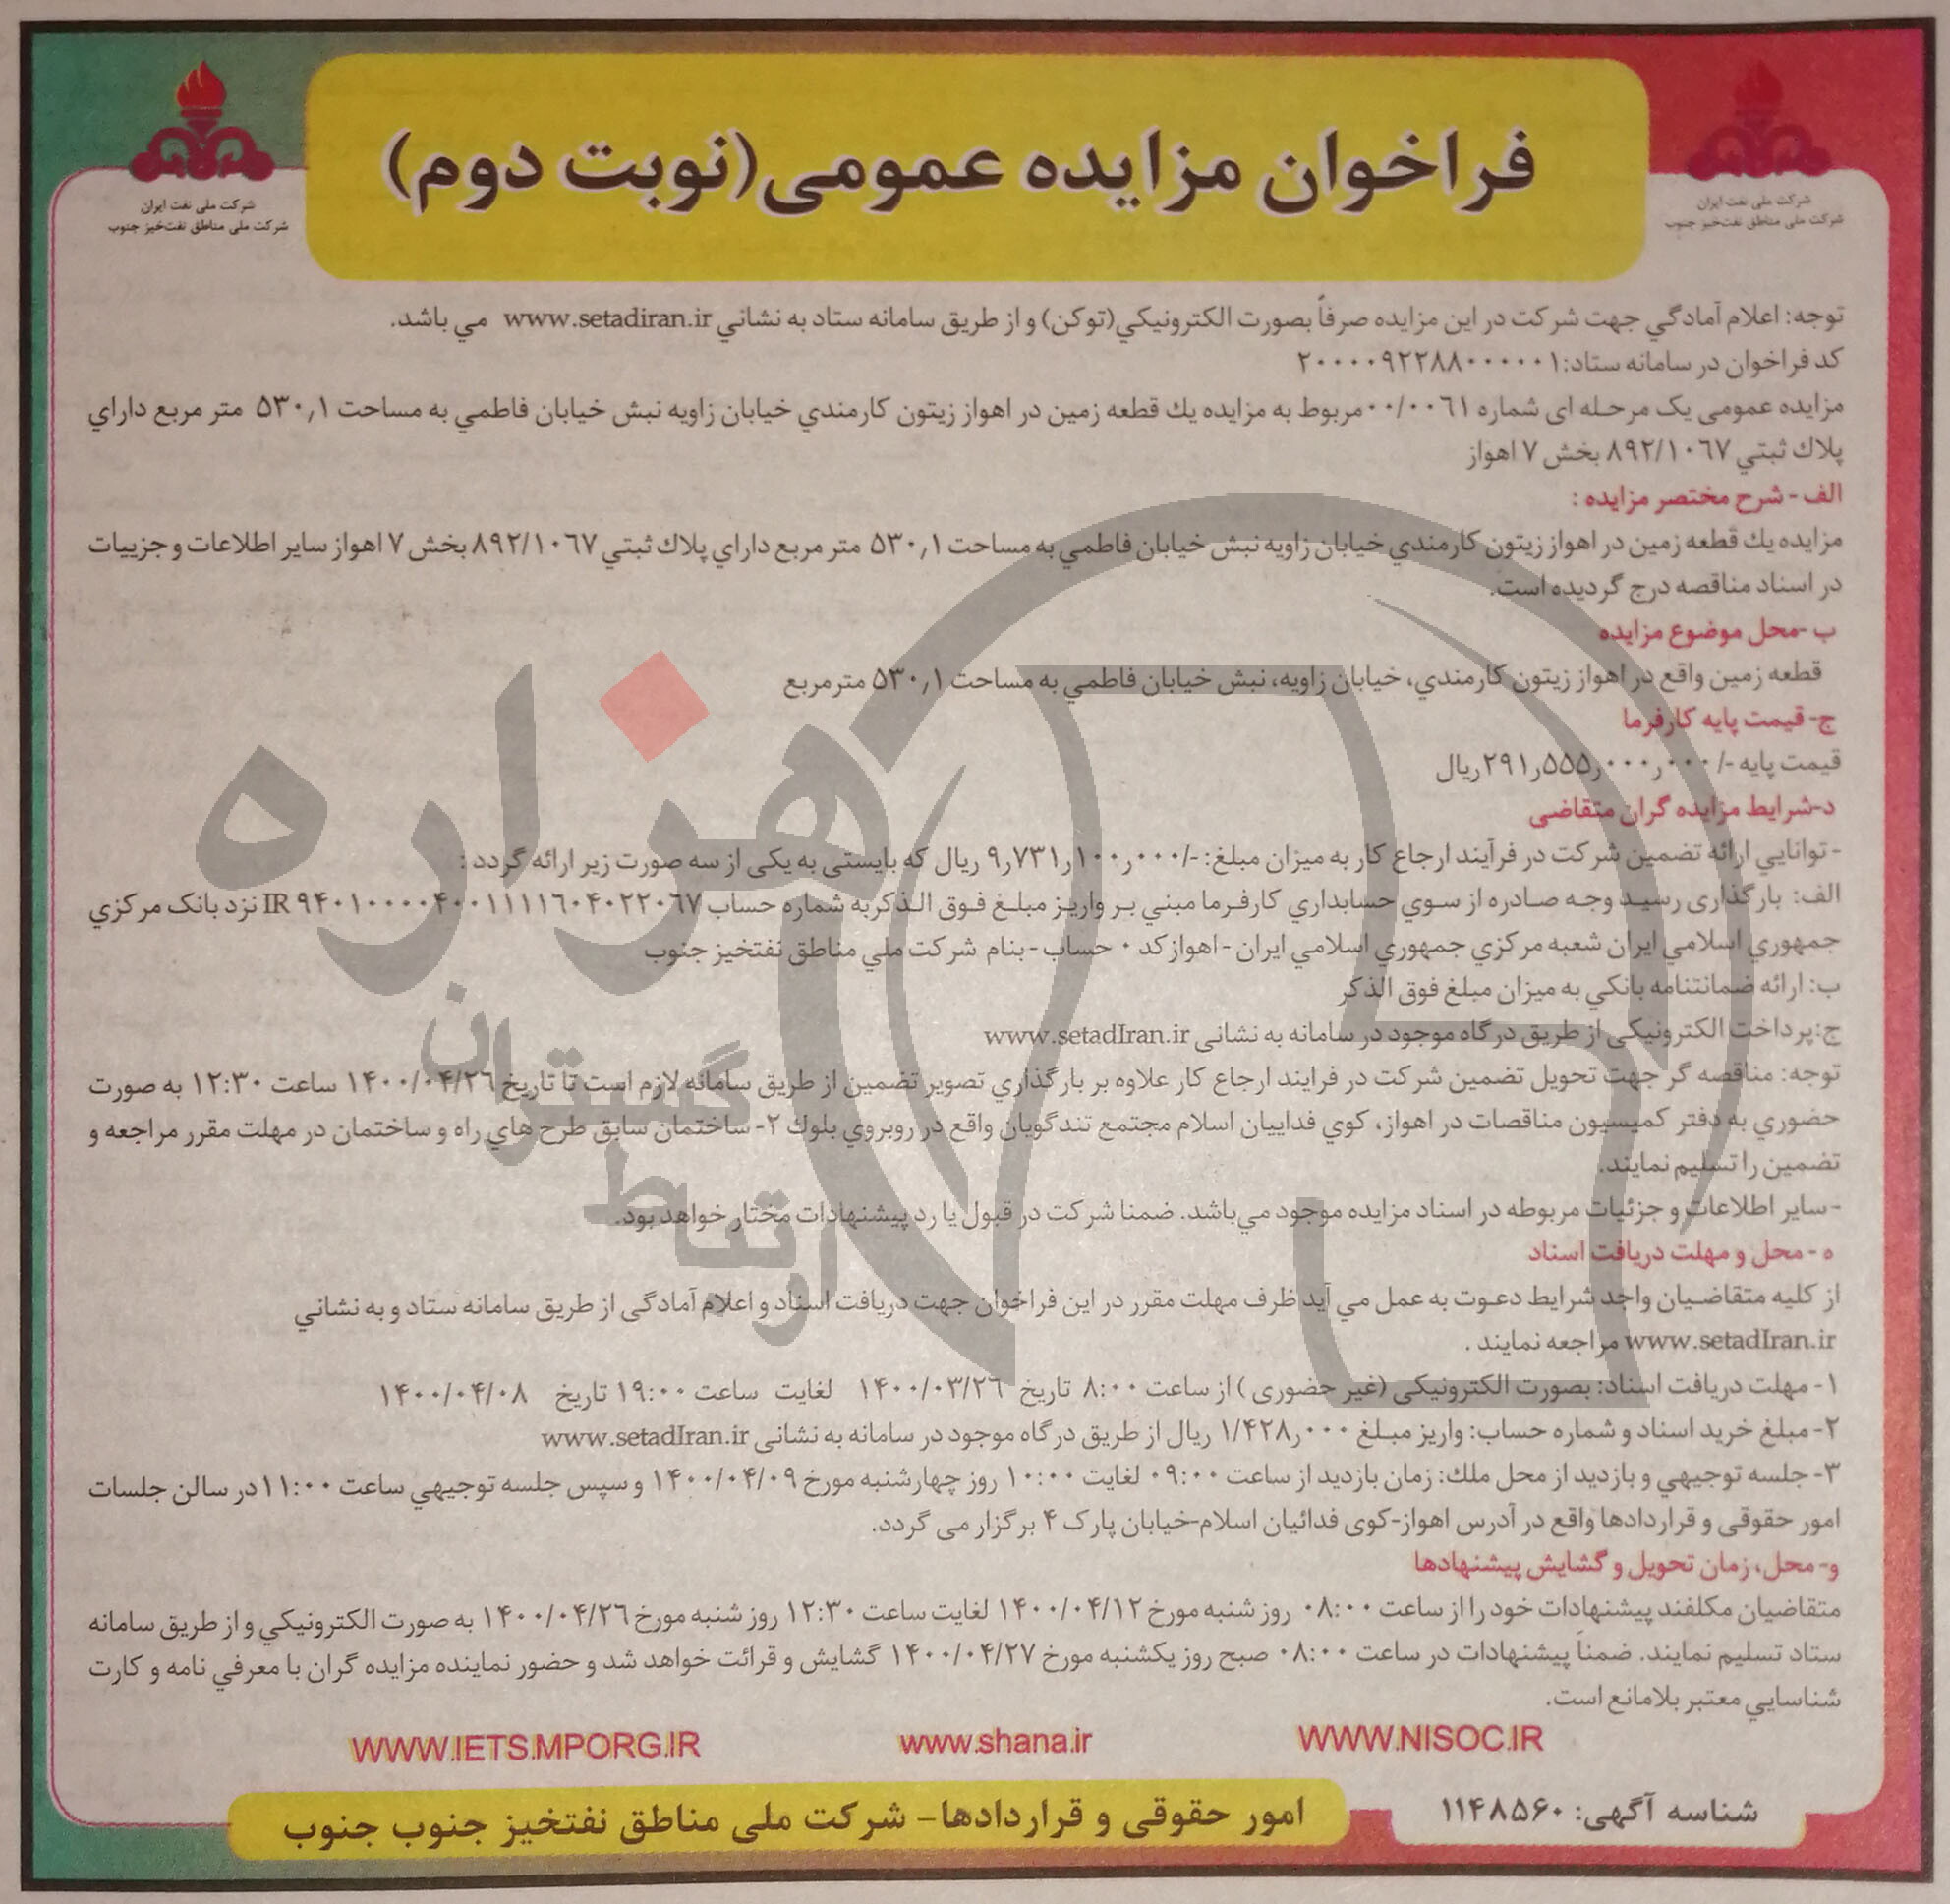 شرکت ملی نفت ایران
شرکت ملی مناطق نفت‌خیز جنوب
فراخوان مزایده عمومی(نوبت دوم)
شرکت ملی نفت ایران
شرکت ملی مناطق نفت‌خیز جنوب
توجه: اعلام آمادگي جهت شرکت در این مزایده صرفاً بصورت الکترونیکي(توکن) و از طریق سامانه ستاد به نشاني www.setadiran.ir مي باشد.
کد فراخوان در سامانه ستاد:۲۰۰۰۰۹۲۲۸۸۰۰۰۰۰۱
مزایده عمومی یک مرحـله ای شماره ۰۰/۰۰۶۱مربوط به مزایده یك قطعه زمین در اهواز زیتون کارمندي خیابان زاویه نبش خیابان فاطمي به مساحت ۵۳۰٫۱ متر مربع داراي
پلاك ثبتي ۸۹۲/۱۰۶۷ بخش ۷ اهواز
الف - شرح مختصر مزایده :
مزایده یك قطعه زمین در اهواز زیتون کارمندي خیابان زاویه نبش خیابان فاطمي به مساحت ۵۳۰٫۱ متر مربع داراي پلاك ثبتي ۸۹۲/۱۰۶۷ بخش ۷ اهواز سایر اطلاعات و جزییات
در اسناد مناقصه درج گردیده است.
ب -محل موضوع مزایده
قطعه زمین واقع در اهواز زیتون کارمندي، خیابان زاویه، نبش خیابان فاطمي به مساحت ۵۳۰٫۱ مترمربع
ج- قیمت پایه کارفرما
قیمت پایه -/۲۹۱٫۵۵۵٫۰۰۰٫۰۰۰ریال
د-شرایط مزایده گران متقاضی
- توانایي ارائه تضمین شرکت در فرآیند ارجاع کار به میزان مبلغ: -/۹٫۷۳۱٫۱۰۰٫۰۰۰ ریال که بایستی به یکی از سه صورت زیر ارائه گردد :
الف: بارگذاری رسیـد وجـه صـادره از سـوي حسابداري کارفـرما مبني بـر واریـز مبلـغ فـوق الـذکربه شماره حساب IR ۹۴۰۱۰۰۰۰۴۰۰۱۱۱۱۶۰۴۰۲۲۰۶۷ نزد بانک مرکزي
جمهوري اسلامي ایران شعبه مرکزي جمهوري اسلامي ایران - اهوازکد ۰ حساب - بنام شرکت ملي مناطق نفتخیز جنوب
ب: ارائه ضمانتنامه بانکي به میزان مبلغ فوق الذکر
ج:پرداخت الکترونیکی از طریق درگاه موجود در سامانه به نشانی www.setadIran.ir
توجه: مناقصه گر جهت تحویل تضمین شرکت در فرایند ارجاع کار علاوه بر بارگذاري تصویر تضمین از طریق سامانه لازم است تا تاریخ ۱۴۰۰/۰۴/۲۶ ساعت ۱۲:۳۰ به صورت
حضوري به دفتر کمیسیون مناقصات در اهواز، کوي فداییان اسلام مجتمع تندگویان واقع در روبروي بلوك ۲- ساختمان سابق طرح هاي راه و ساختمان در مهلت مقرر مراجعه و
تضمین را تسلیم نمایند.
- سایر اطلاعات و جزئیات مربوطه در اسناد مزایده موجود مي‌باشد. ضمنا شرکت در قبول یا رد پیشنهادات مختار خواهد بود.
ه - محل و مهلت دریافت اسناد
از کلیه متقاضـیان واجد شرایط دعـوت به عمل مي آید ظرف مهلت مقرر در این فراخوان جهت دریافت اسناد و اعلام آمادگی از طریق سامانه ستاد و به نشاني
www.setadIran.ir مراجعه نمایند .
۱- مهلت دریافت اسناد: بصورت الکترونیکی (غیر حضوری ) از ساعت ۸:۰۰ تاریخ ۱۴۰۰/۰۳/۲۶ لغایت ساعت ۱۹:۰۰ تاریخ ۱۴۰۰/۰۴/۰۸
۲- مبلغ خرید اسناد و شماره حساب: واریز مبـلغ ۱/۴۲۸٫۰۰۰ ریال از طریق درگاه موجود در سامانه به نشانی www.setadIran.ir
۳- جلسه توجیهي و بازدید از محل ملك: زمان بازدید از ساعت ۰۹:۰۰ لغایت ۱۰:۰۰ روز چهارشنبه مورخ ۱۴۰۰/۰۴/۰۹ و سپس جلسه توجیهي ساعت ۱۱:۰۰در سالن جلسات
امور حقوقی و قراردادها واقع در آدرس اهواز-کوی فدائیان اسلام-خیابان پارک ۴ برگزار می گردد.
و- محل، زمان تحویل و گشایش پیشنهادها
متقاضیان مکلفند پیشنهادات خود را از ساعت ۰۸:۰۰ روز شنبه مورخ ۱۴۰۰/۰۴/۱۲ لغایت ساعت ۱۲:۳۰ روز شنبه مورخ ۱۴۰۰/۰۴/۲۶ به صورت الکترونیکي و از طریق سامانه
ستاد تسلیم نمایند. ضمناً پیشنهادات در ساعت ۰۸:۰۰ صبح روز یکشنبه مورخ ۱۴۰۰/۰۴/۲۷ گشایش و قرائت خواهد شد و حضور نماینده مزایده گران با معرفي نامه و کارت
شناسایي معتبر بلامانع است.
WWW.NISOC.IR
www.shana.ir
WWW.IETS.MPORG.IR
شناسه آگهی: ۱۱۴۸۵۶۰
امور حقوقی و قراردادها- شرکت ملی مناطق نفتخیز جنوب جنوب
هزاره
ارتباط
گستران